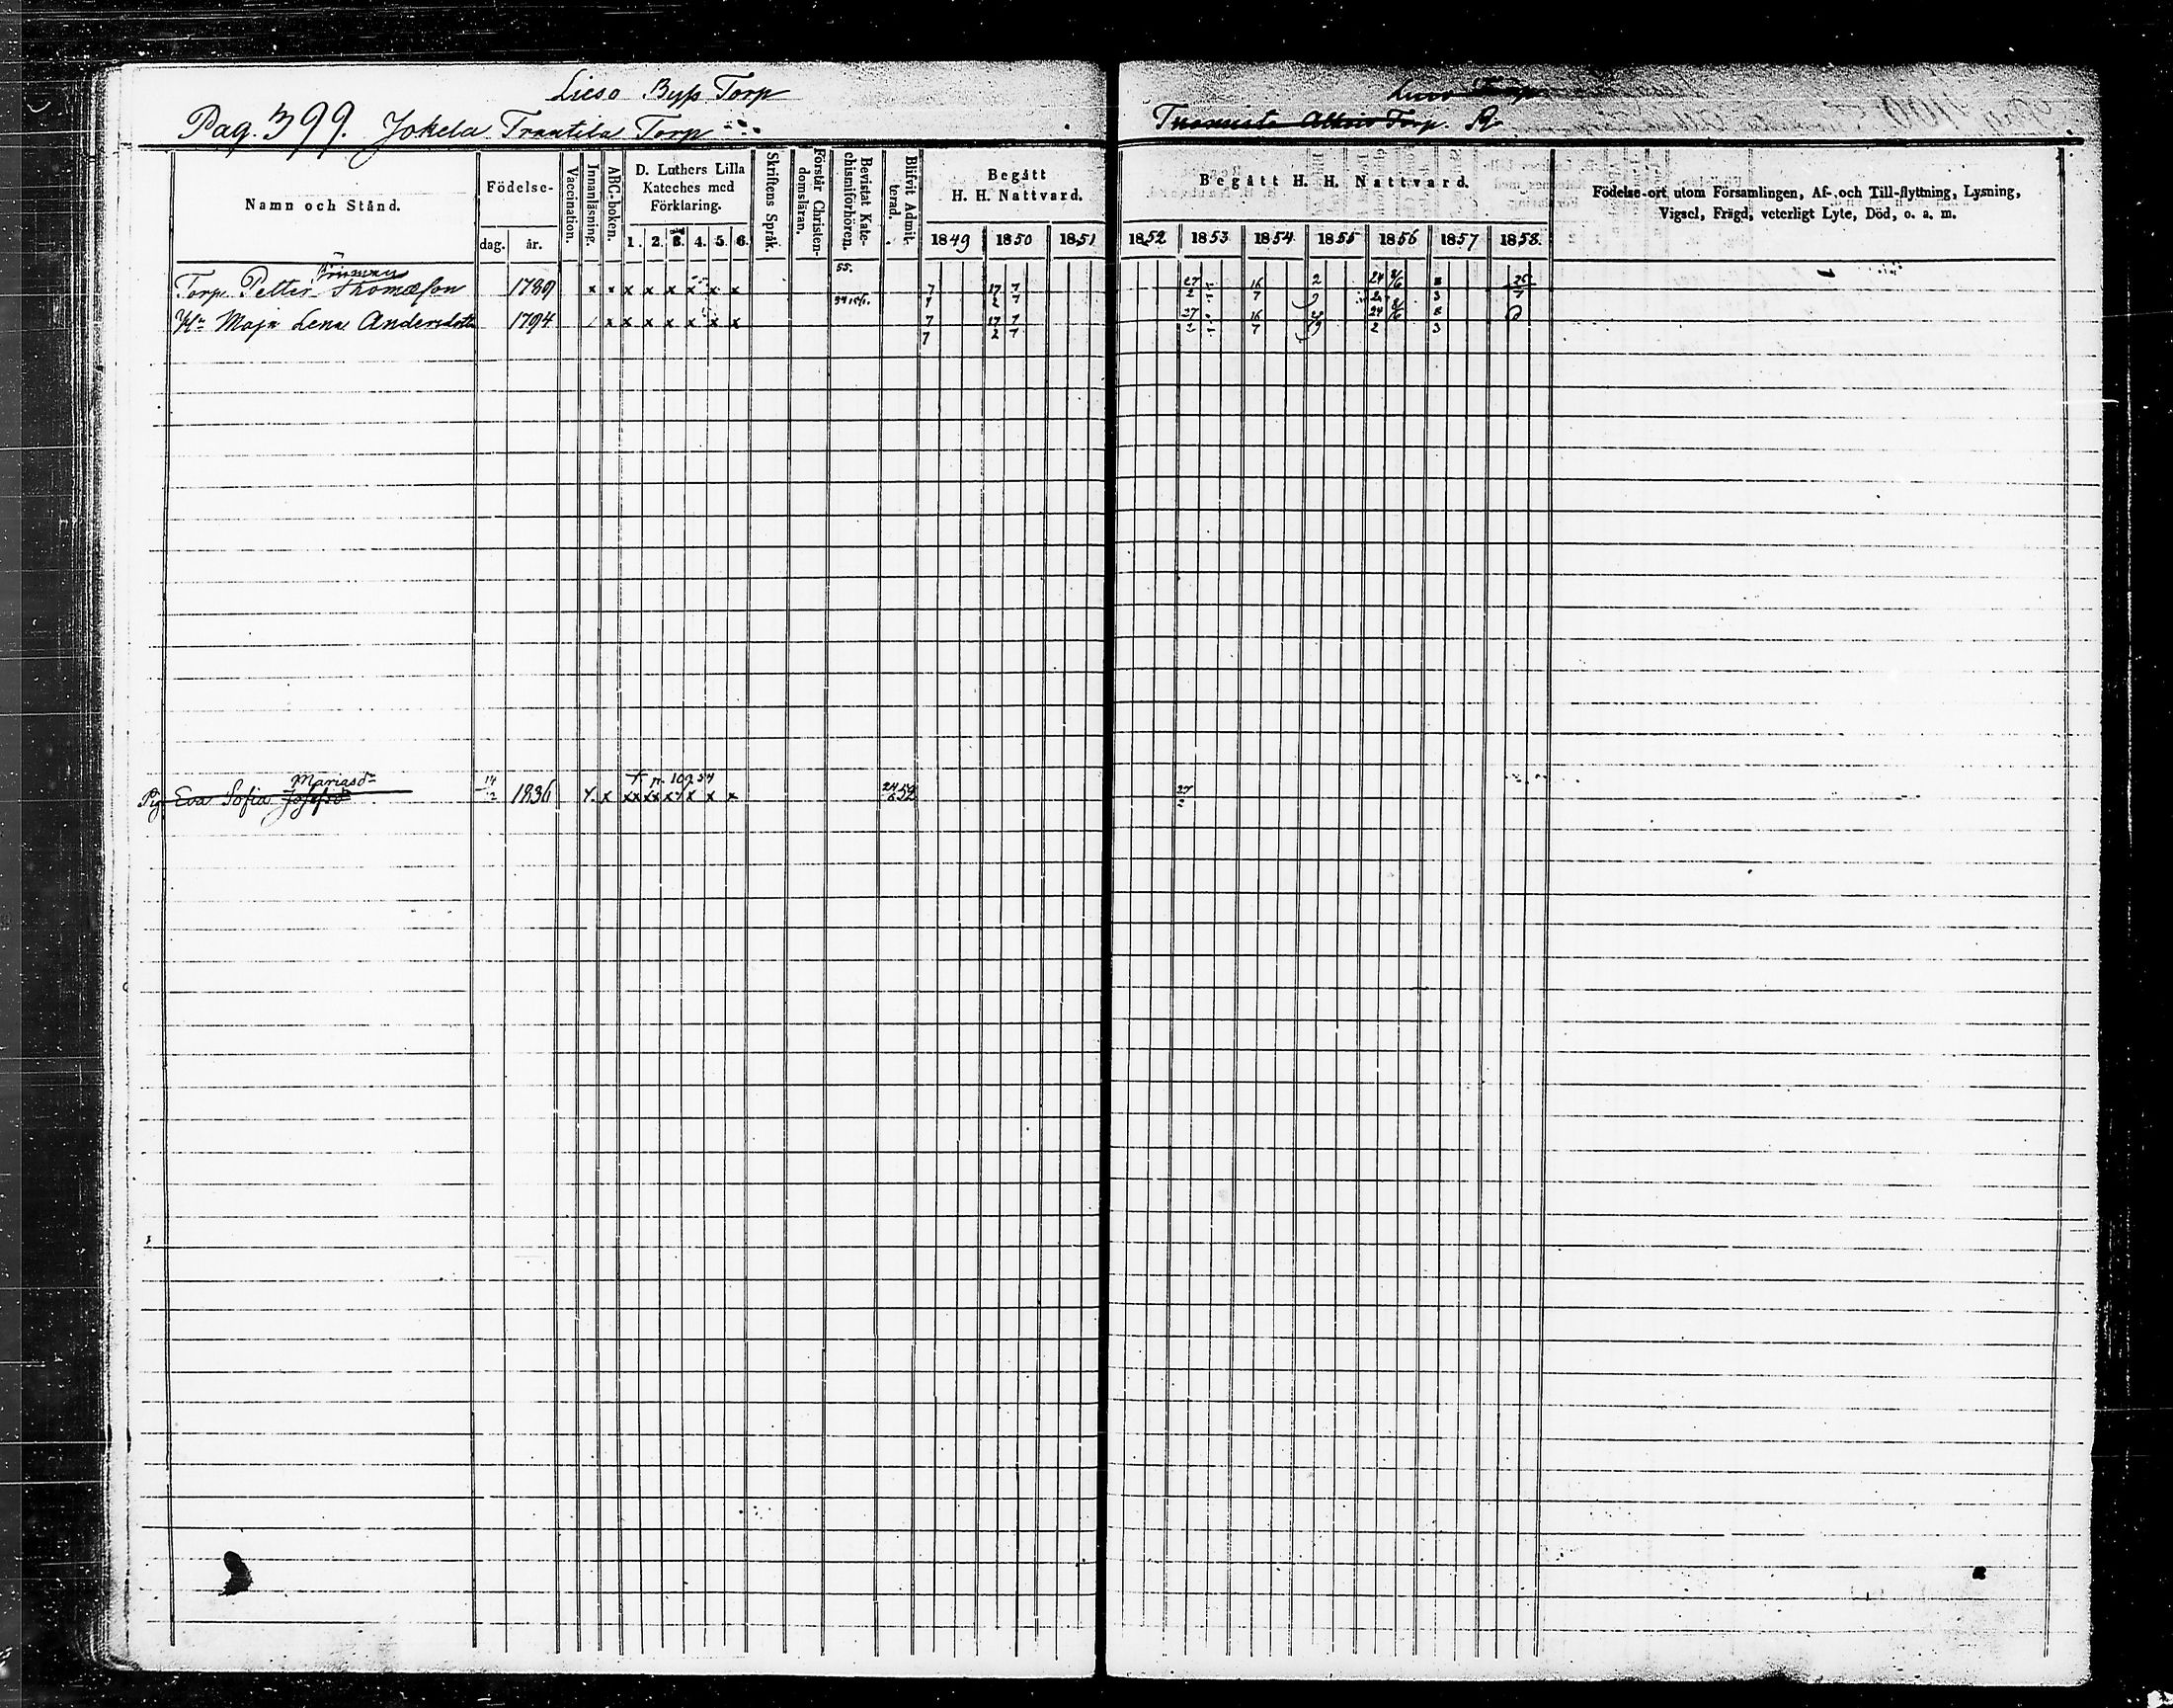 Lieso Byss Torp
Pag. 399. Jokela Trantila Torp
Namn och Stånd.
Födelse-
dag. år.
Vaccination.
Innanläsning.
ABC-boken.
D. Luthers Lilla
Kateches med
Förklaring.
1. 2. 3. 4. 5. 6.
Skriftens Språk.
Förstår Christen-
domsläran.
Bevistat Kate-
chismiförhören.
Blifvit Admit-
terad.
Begått
H. H. Nattvard.
1849 1850 1851
Torp.
Begått H. H. Nattvard.
1852 1853 1854 1855 1856 1857 1858
Födelse-ort utom Församlingen, Af- och Till-flyttning, Lysning,
Vigsel, Frägd, veterligt Lyte, Död, o. a. m.
55.
Torp. Petter Thomasson 1789 x x x x x x x x 7 17 7 27 16 2 24 8/6 25
7 2 7 2 7 3 7
Hu Maja Lena Andersdotter 1794 x x x x x x x 7 17 7 27 16 24 8/6
7 2 7 2 7 9 2 3
Mariasdr
Pig. Eva Sofia Josefsdr 14/12 1836 x x x x x 27/2